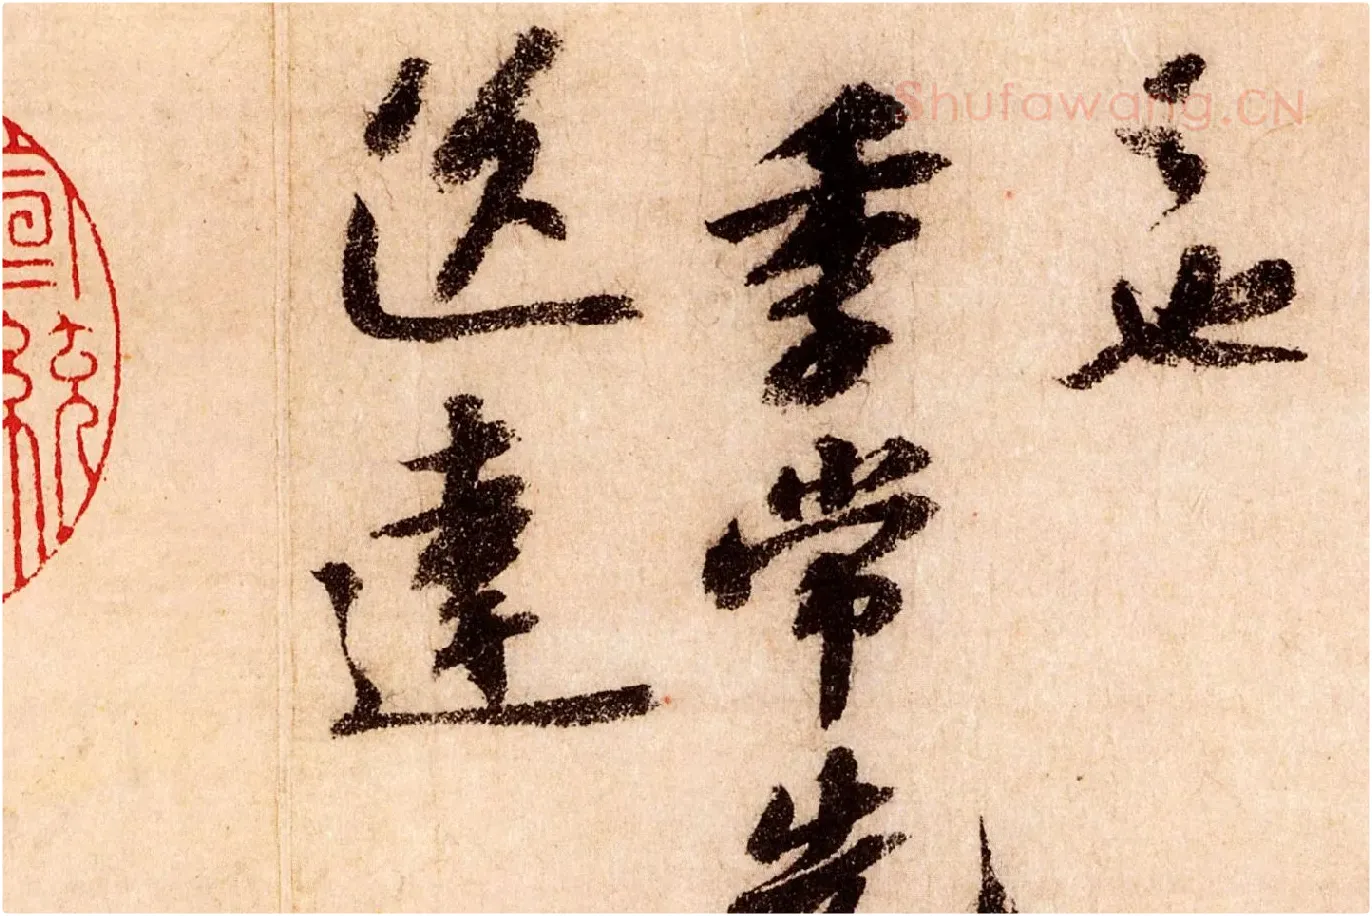 之也
季常先
送達
Shufawang.CN